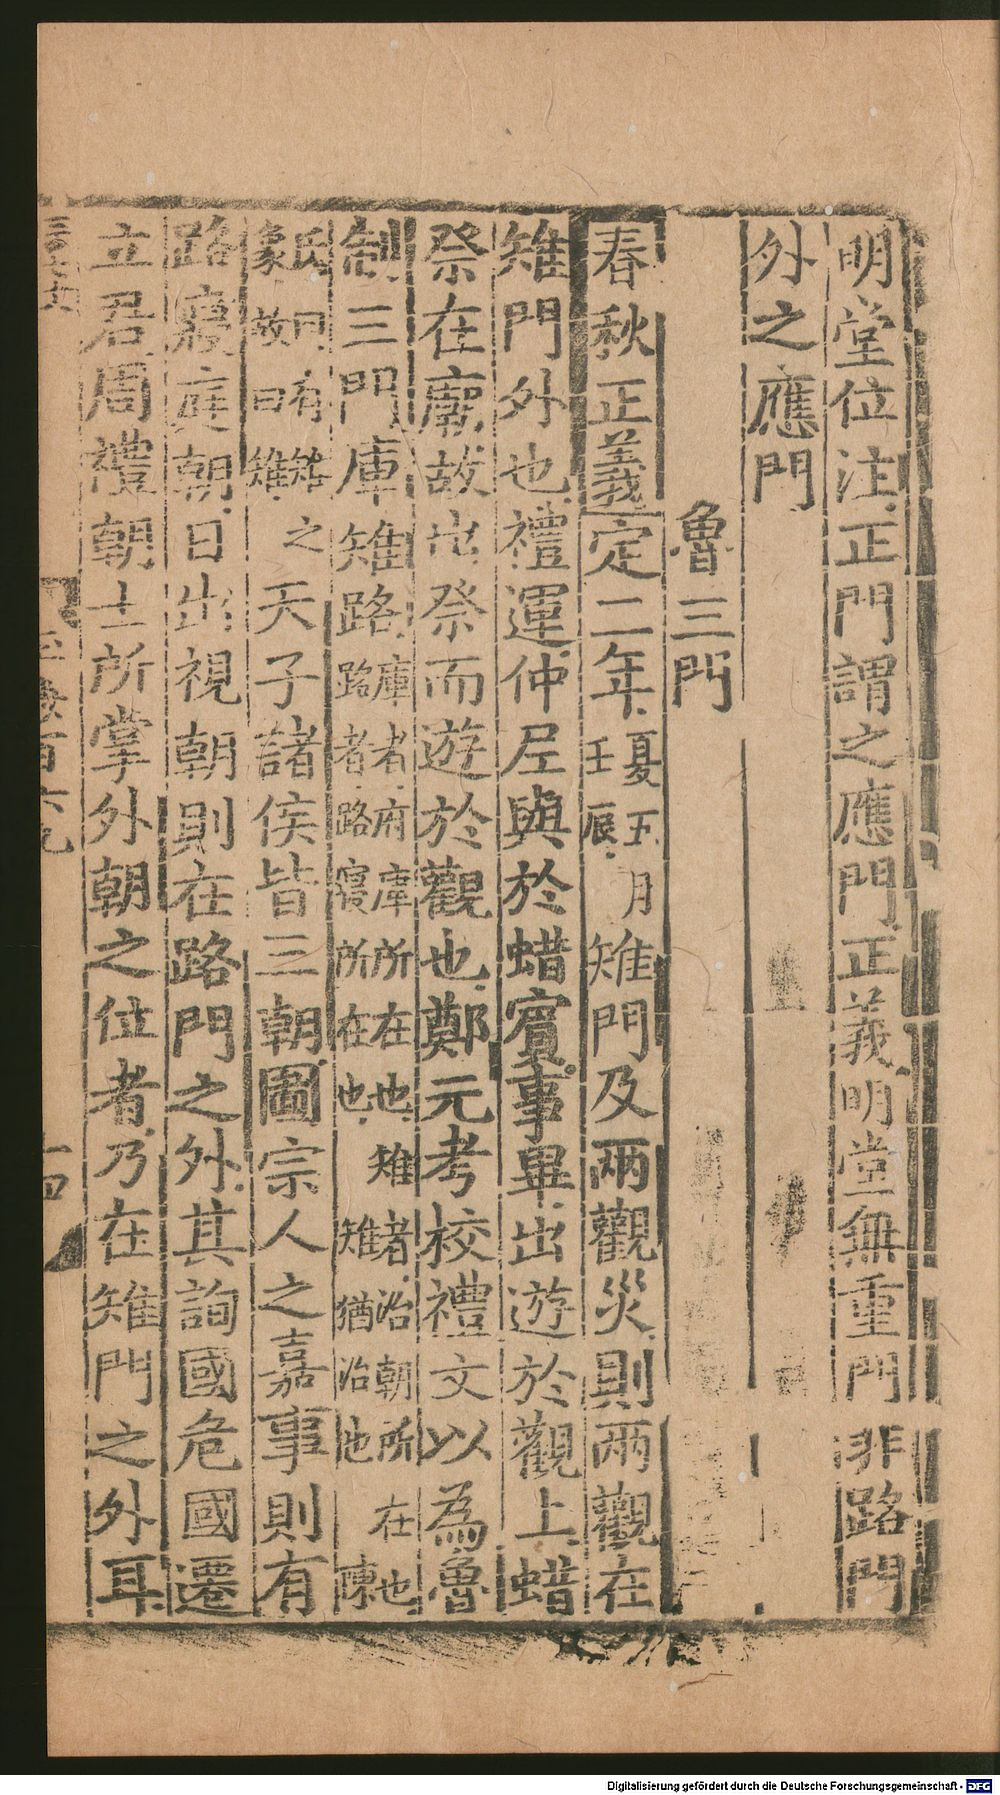 明堂位注正門謂之應門正義明堂無重門非路門
外之應門
魯三門
春秋正義定二年夏五月壬辰雉門及兩觀災則兩觀在
雉門外也禮運仲尼與於蜡賓事畢出遊於觀上蜡
祭在廟故出祭而遊於觀也鄭元考校禮文以為魯
制三門庫雉路庫者府庫所在也雉者治朝所在也路者路寢所在也雉猶治也陳
氏曰有雉之象故曰雉天子諸侯皆三朝圖宗人之嘉事則有
路寢庭朝日出視朝則在路門之外其詢國危國遷
立君周禮朝士所掌外朝之位者乃在雉門之外耳
Digitalisierung gefördert durch die Deutsche Forschungsgemeinschaft - DFG